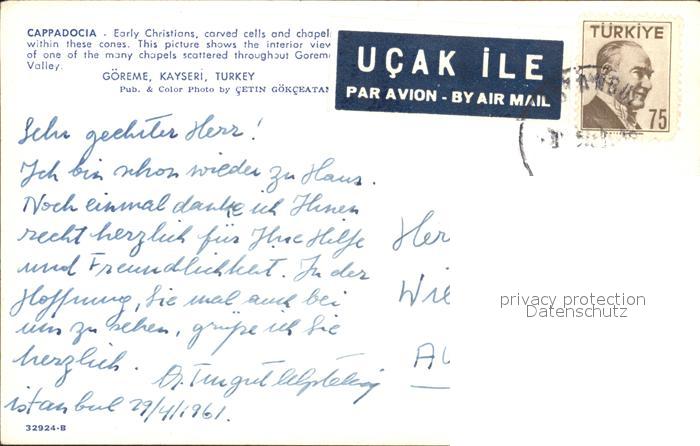 CAPPADOCIA - Early Christians, carved cells and chapel
within these cones. This picture shows the interior view
of one of the many chapels scattered throughout Goreme
Valley.
GÖREME, KAYSERİ, TURKEY
Pub. & Color Photo by ÇETİN GÖKÇEATAN
UÇAK İLE
PAR AVION - BY AIR MAIL
TÜRKİYE
75
Sehr geehrter Herr!
Ich bin schon wieder zu Haus.
Noch einmal danke ich Ihnen
recht herzlich für Ihre Hilfe
und Freundlichkeit. In der
Hoffnung, Sie mal auch bei
uns zu sehen, grüße ich Sie
herzlich.
Dr. Turgut
istanbul 29/4/1961.
32924-B
Her
Wie
AU
privacy protection
Datenschutz